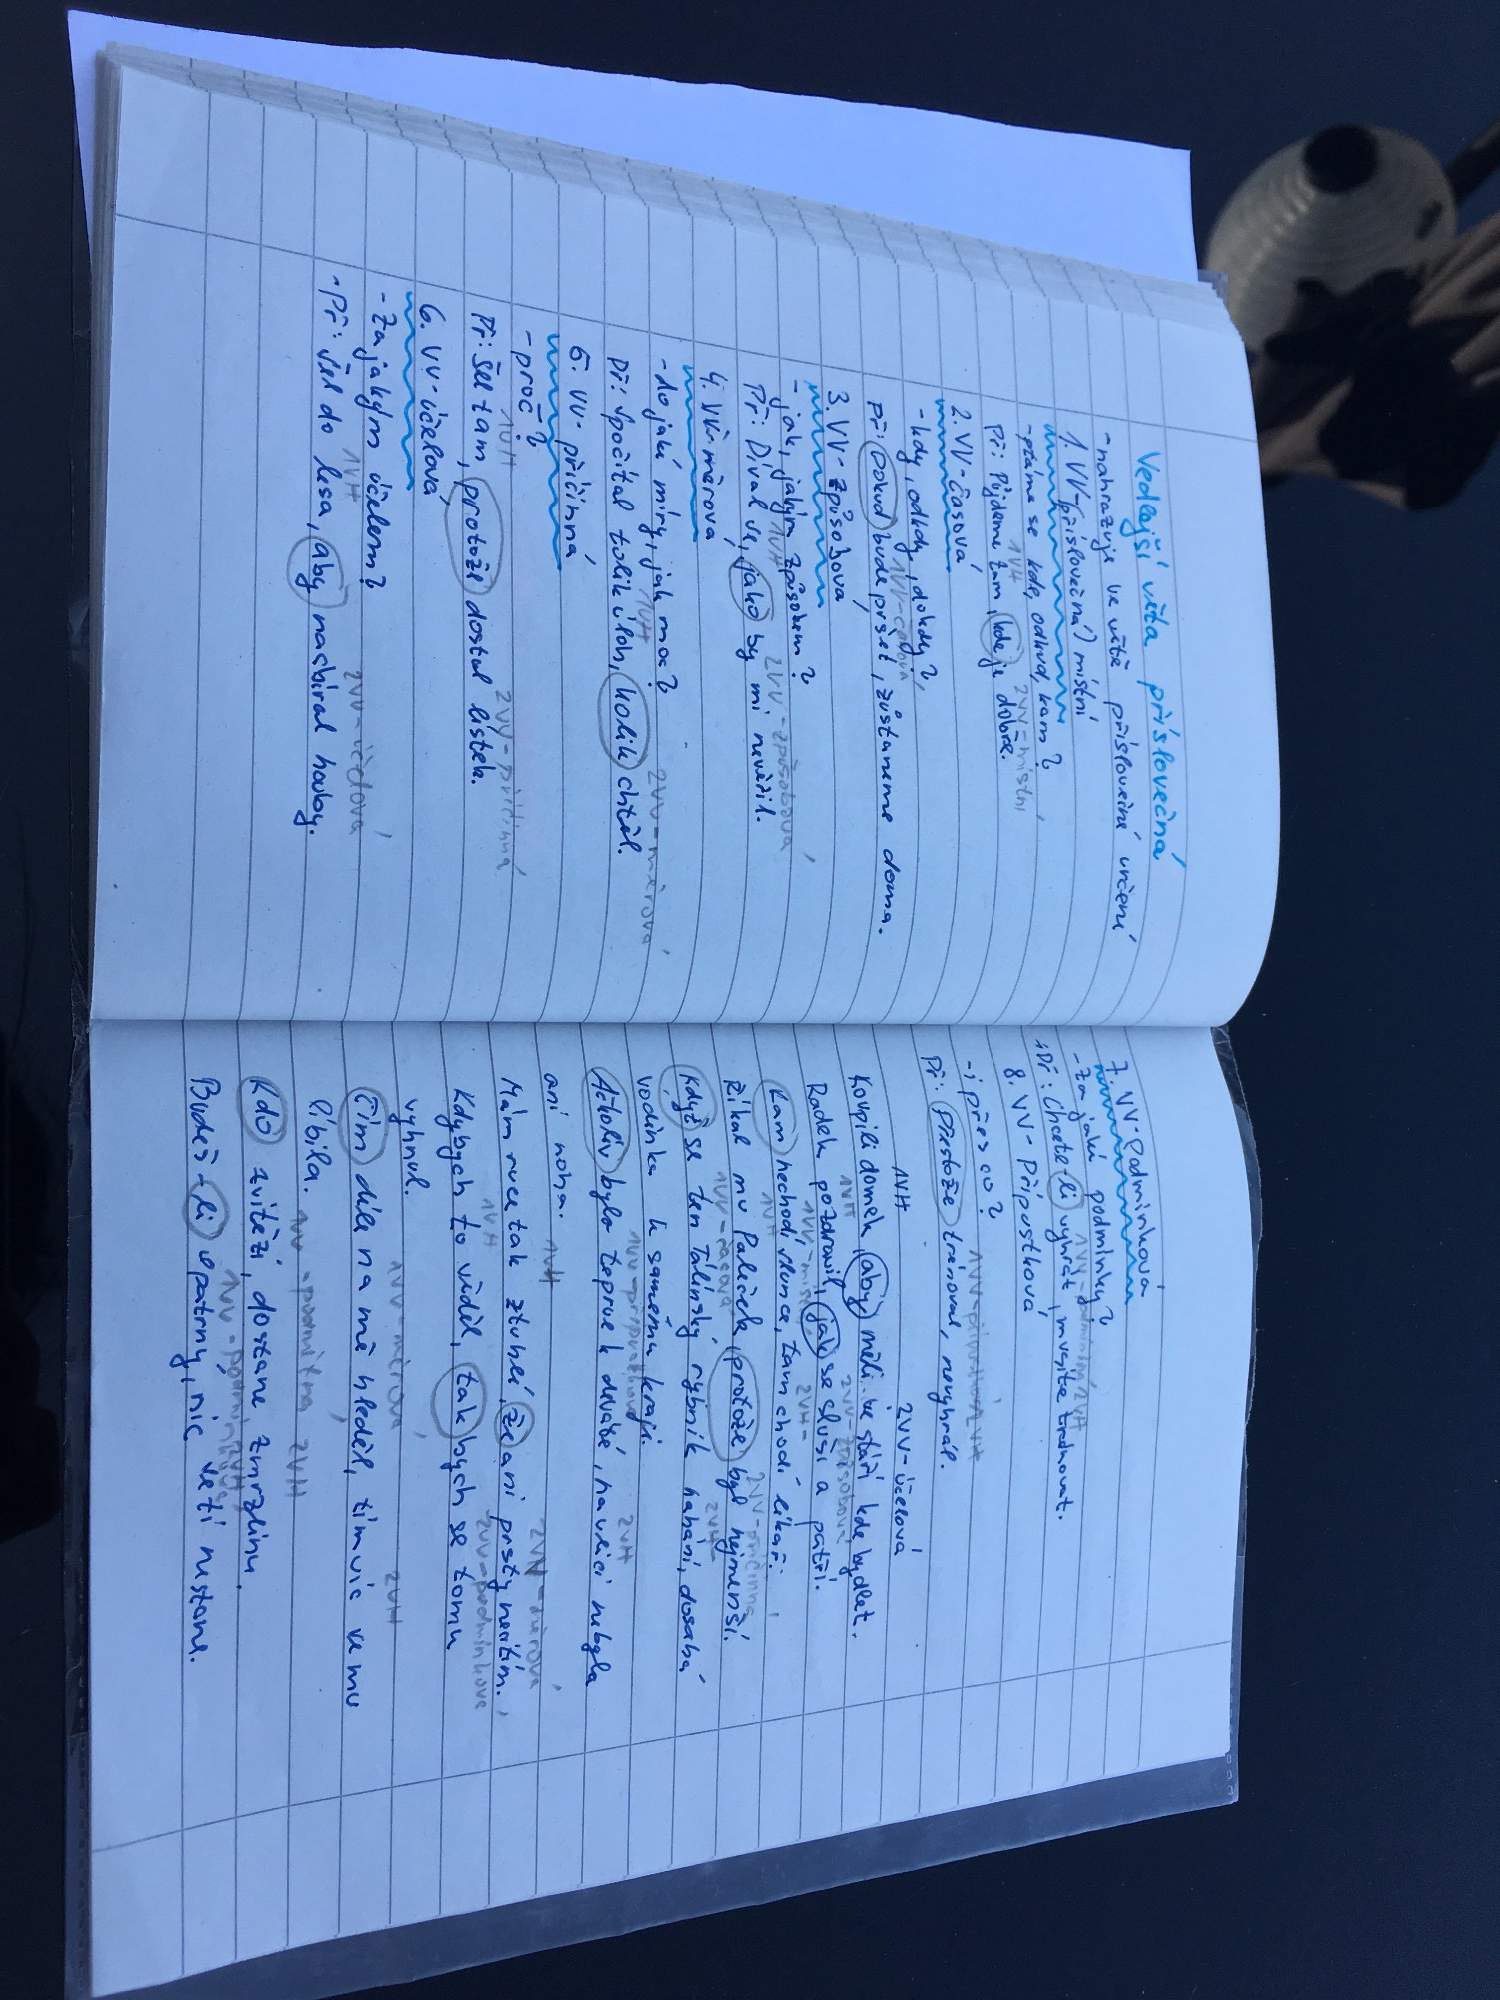 Vedlejší věta příslovečná
- nahrazuje ve větě příslovečné určení
1. VV-(příslovečná) místní
- ptáme se kde, odkud, kam?
1VH 2VV-místní
Př: Půjdeme tam, kde je dobře.
2. VV-časová
- kdy, odkdy, dokdy?
1VV-časová
Př: Pokud bude pršet, zůstaneme doma.
3. VV-způsobová
- jak, jakým způsobem?
1VH 2VV-způsobová
Př: Díval se, jako by mi nevěřil.
4. VV-měrová
- do jaké míry, jak moc?
1VH 2VV-měrová
Př: Spočítal tolik úloh, kolik chtěl.
5. VV-příčinná
- proč?
1VH 2VV-příčinná
Př: Šel tam, protože dostal lístek.
6. VV-účelová
- za jakým účelem?
1VH 2VV-účelová
-Př: Šel do lesa, aby nasbíral houby.
7. VV-Podmínková
- za jaké podmínky?
2VH
Př: Chcete-li vyhrát, musíte trénovat.
8. VV-Přípustková
- i přes co?
2VH
Př: Přestože trénoval, nevyhrál.
1VH 2VV-účelová
Koupili domek, aby měli ve stáří kde bydlet.
1VH 2VV-způsobová
Radek pozdravil, jak se sluší a patří.
2VH
Kam nechodí slunce, tam chodí lékař.
1VH 2VV-příčinná
Říkal mu Paleček, protože byl nejmenší.
1VV-časová 2VH
Když se ten Tálinský rybník nahání, dosahá
vodinka k samému kraji.
1VV-přípustková 2VH
Ačkoliv bylo teprve k deváté, na ulici nebyla
ani noha.
1VH 2VV-měrová
Mám ruce tak ztuhlé, že ani prsty necítím.
1VH 2VV-podmínková
Kdybych to věděl, tak bych se tomu
vyhnul.
1VV-měrová 2VH
Čím déle na mě hleděl, tím víc se mu
líbila.
2VH
Kdo zvítězí, dostane zmrzlinu.
2VH
Budeš-li opatrný, nic se ti nestane.